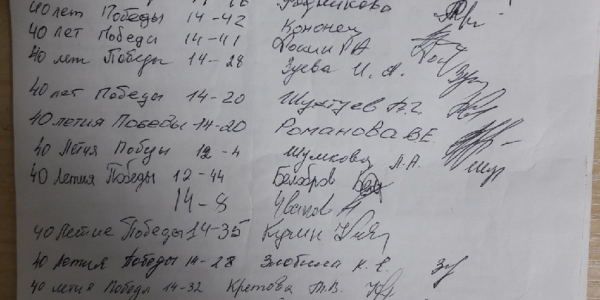 40 лет Победы 14-42 Кононец
40 лет Победи 14-41
40 лет Победы 14-28 Зуева И. А.
40 лет Победы 14-20 Шунтуев А.Г.
40 летия Победы 14-20 Романова В.Е.
40 летия Победы 12-4 Шумкова Л.А.
40 летия Победы 12-44 Белобров
14-8 Иванов А
40 летие Победы 14-35 Кулин
40 летия Победы 14-28 Злобина К. Е.
40 летия Победы 14-32 Кретова Т.В.